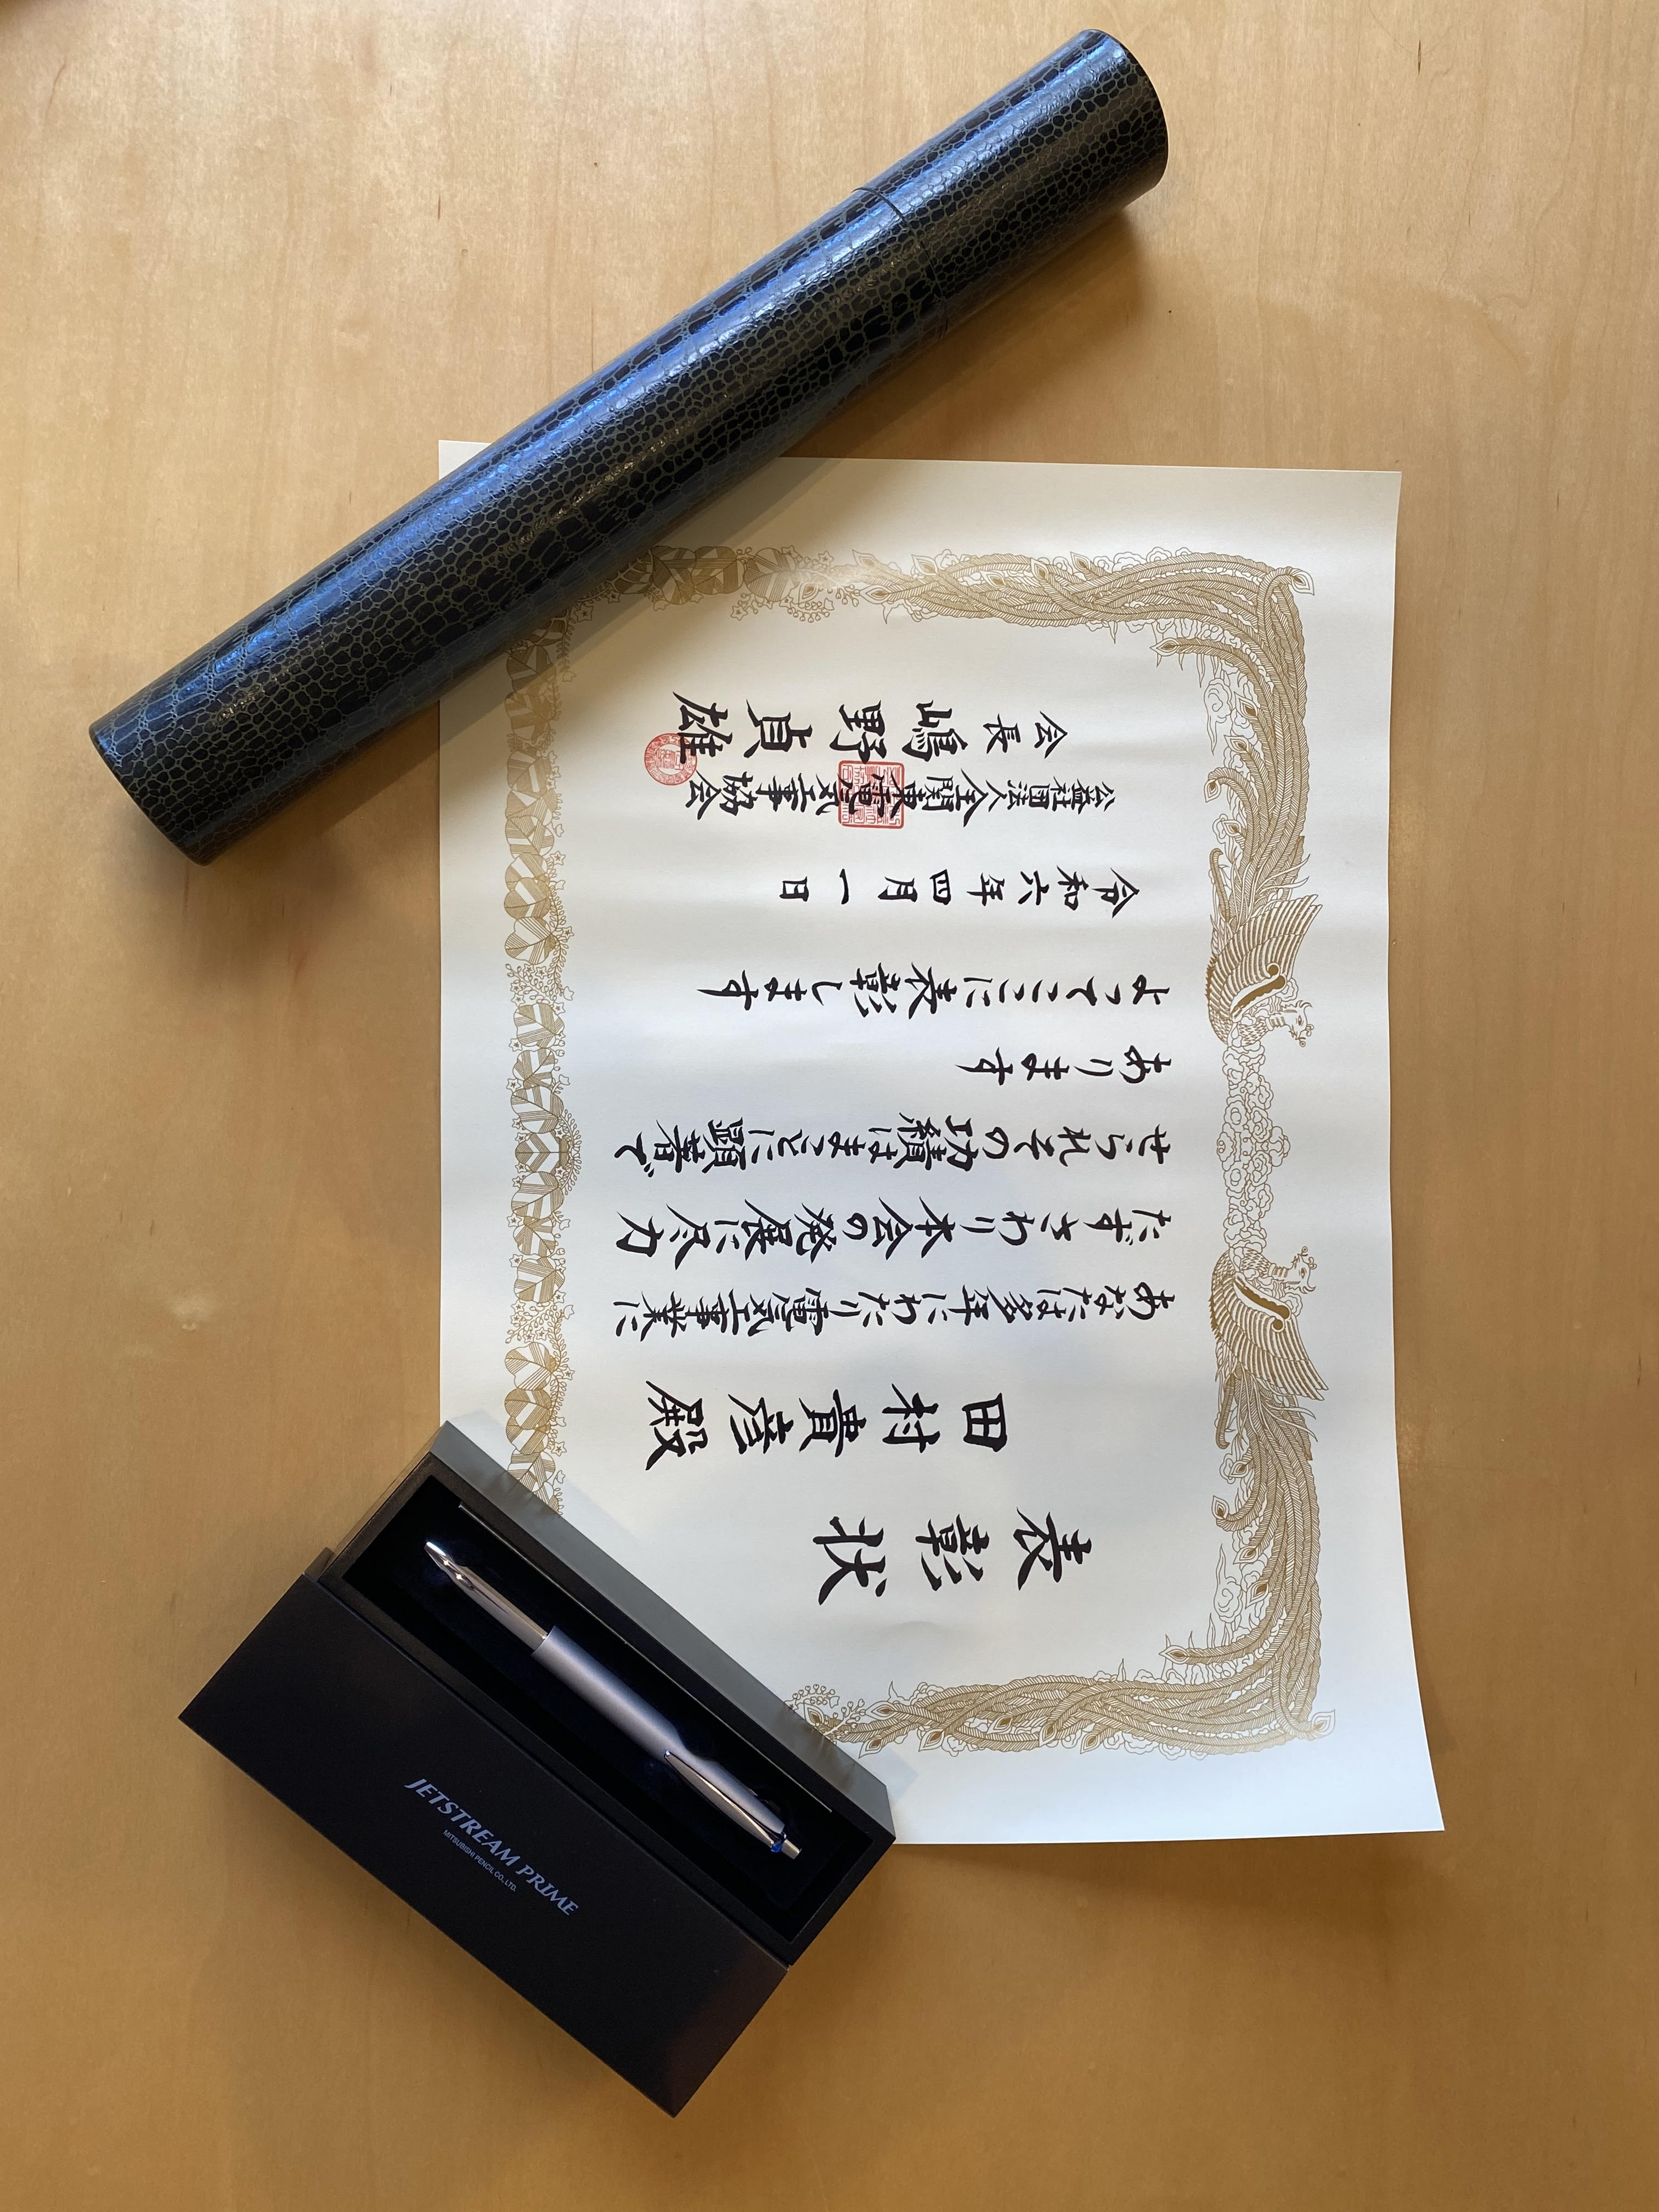 表彰状
田村貴彦殿
あなたは多年にわたり電気工事業に
たずさわり本会の発展に尽力
せられその功績はまことに顕著で
あります
よってここに表彰します
令和六年四月一日
公益社団法人全関東電気工事協会
会長嶋野貞雄
JETSTREAM PRIME
MITSUBISHI PENCIL CO., LTD.